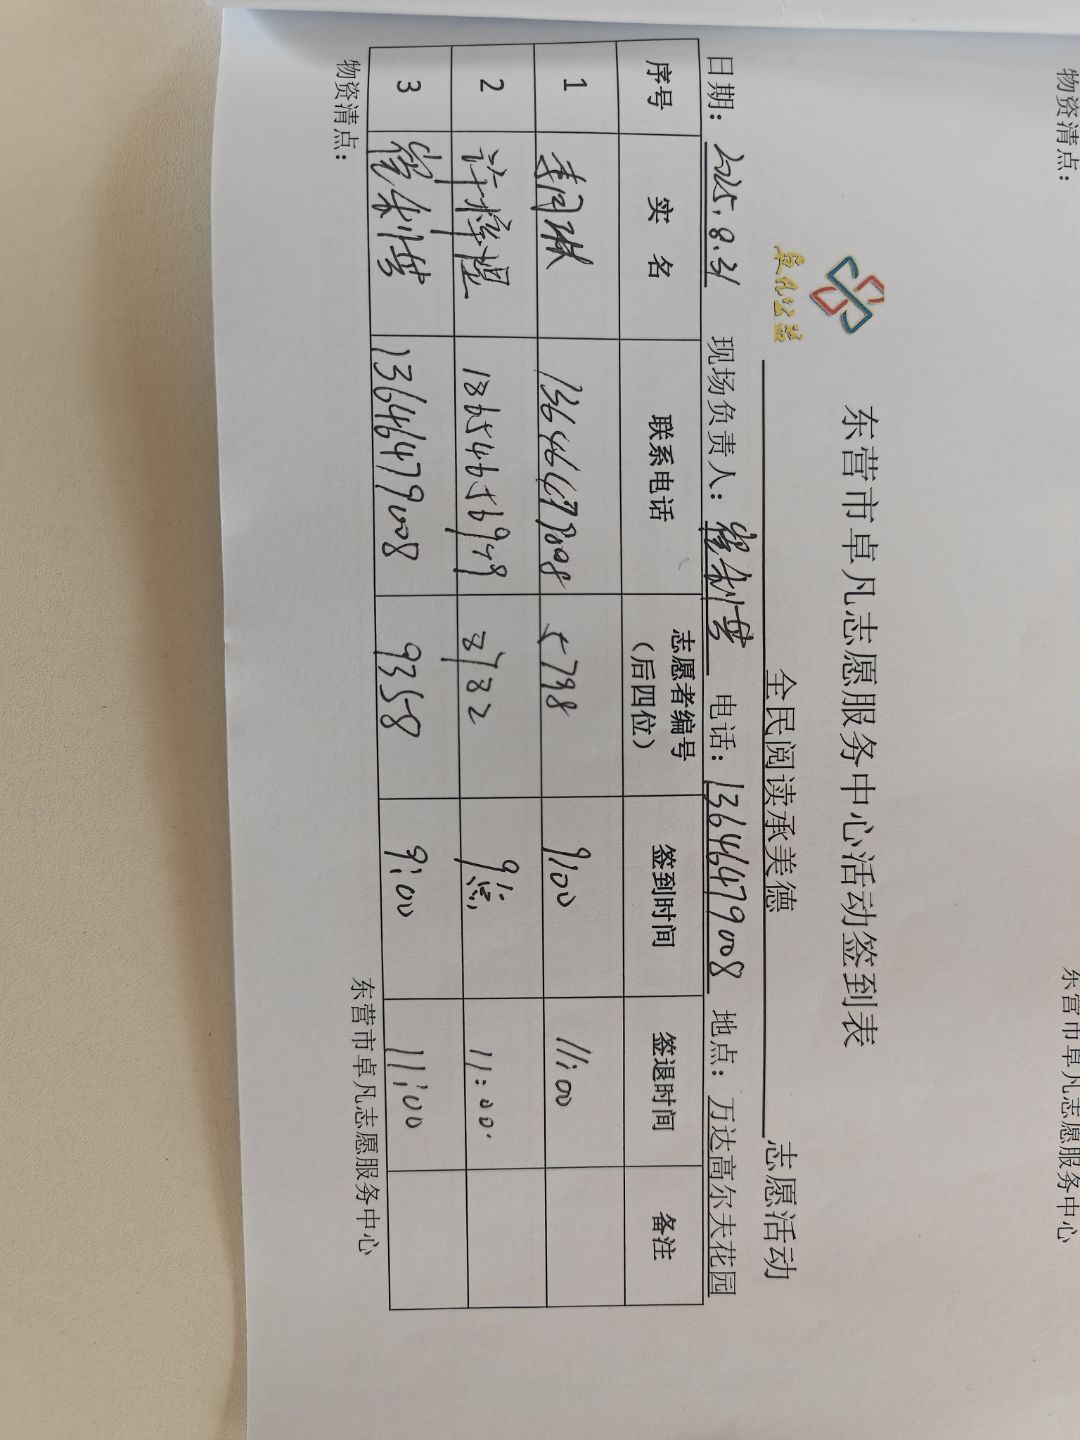 卓凡公益
东营市卓凡志愿服务中心活动签到表
全民阅读承美德 志愿活动
日期：2025.8.31 现场负责人： 电话：13646479008 地点：万达高尔夫花园
序号 实名 联系电话 志愿者编号（后四位） 签到时间 签退时间 备注
1 5798 9:00 11:00
2 许 11:00.
3 13646479008 9358 9:00 11:00
物资清点： 东营市卓凡志愿服务中心
物资清点： 东营市卓凡志愿服务中心